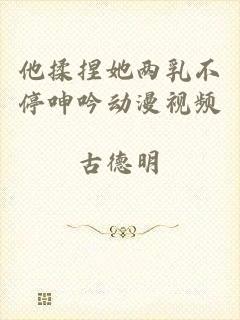 他揉捏她两乳不
停呻吟动漫视频
古德明